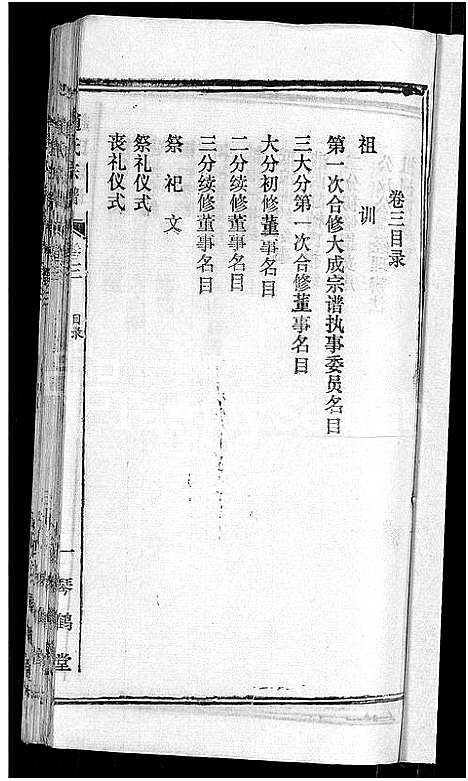 卷三目录
祖训
第一次合修大成宗谱执事委员名目
三大分第一次合修董事名目
大分初修董事名目
二分续修董事名目
三分续修董事名目
祭祀文
祭礼仪式
丧礼仪式
氏宗谱
卷三
目录
一
琴鹤堂